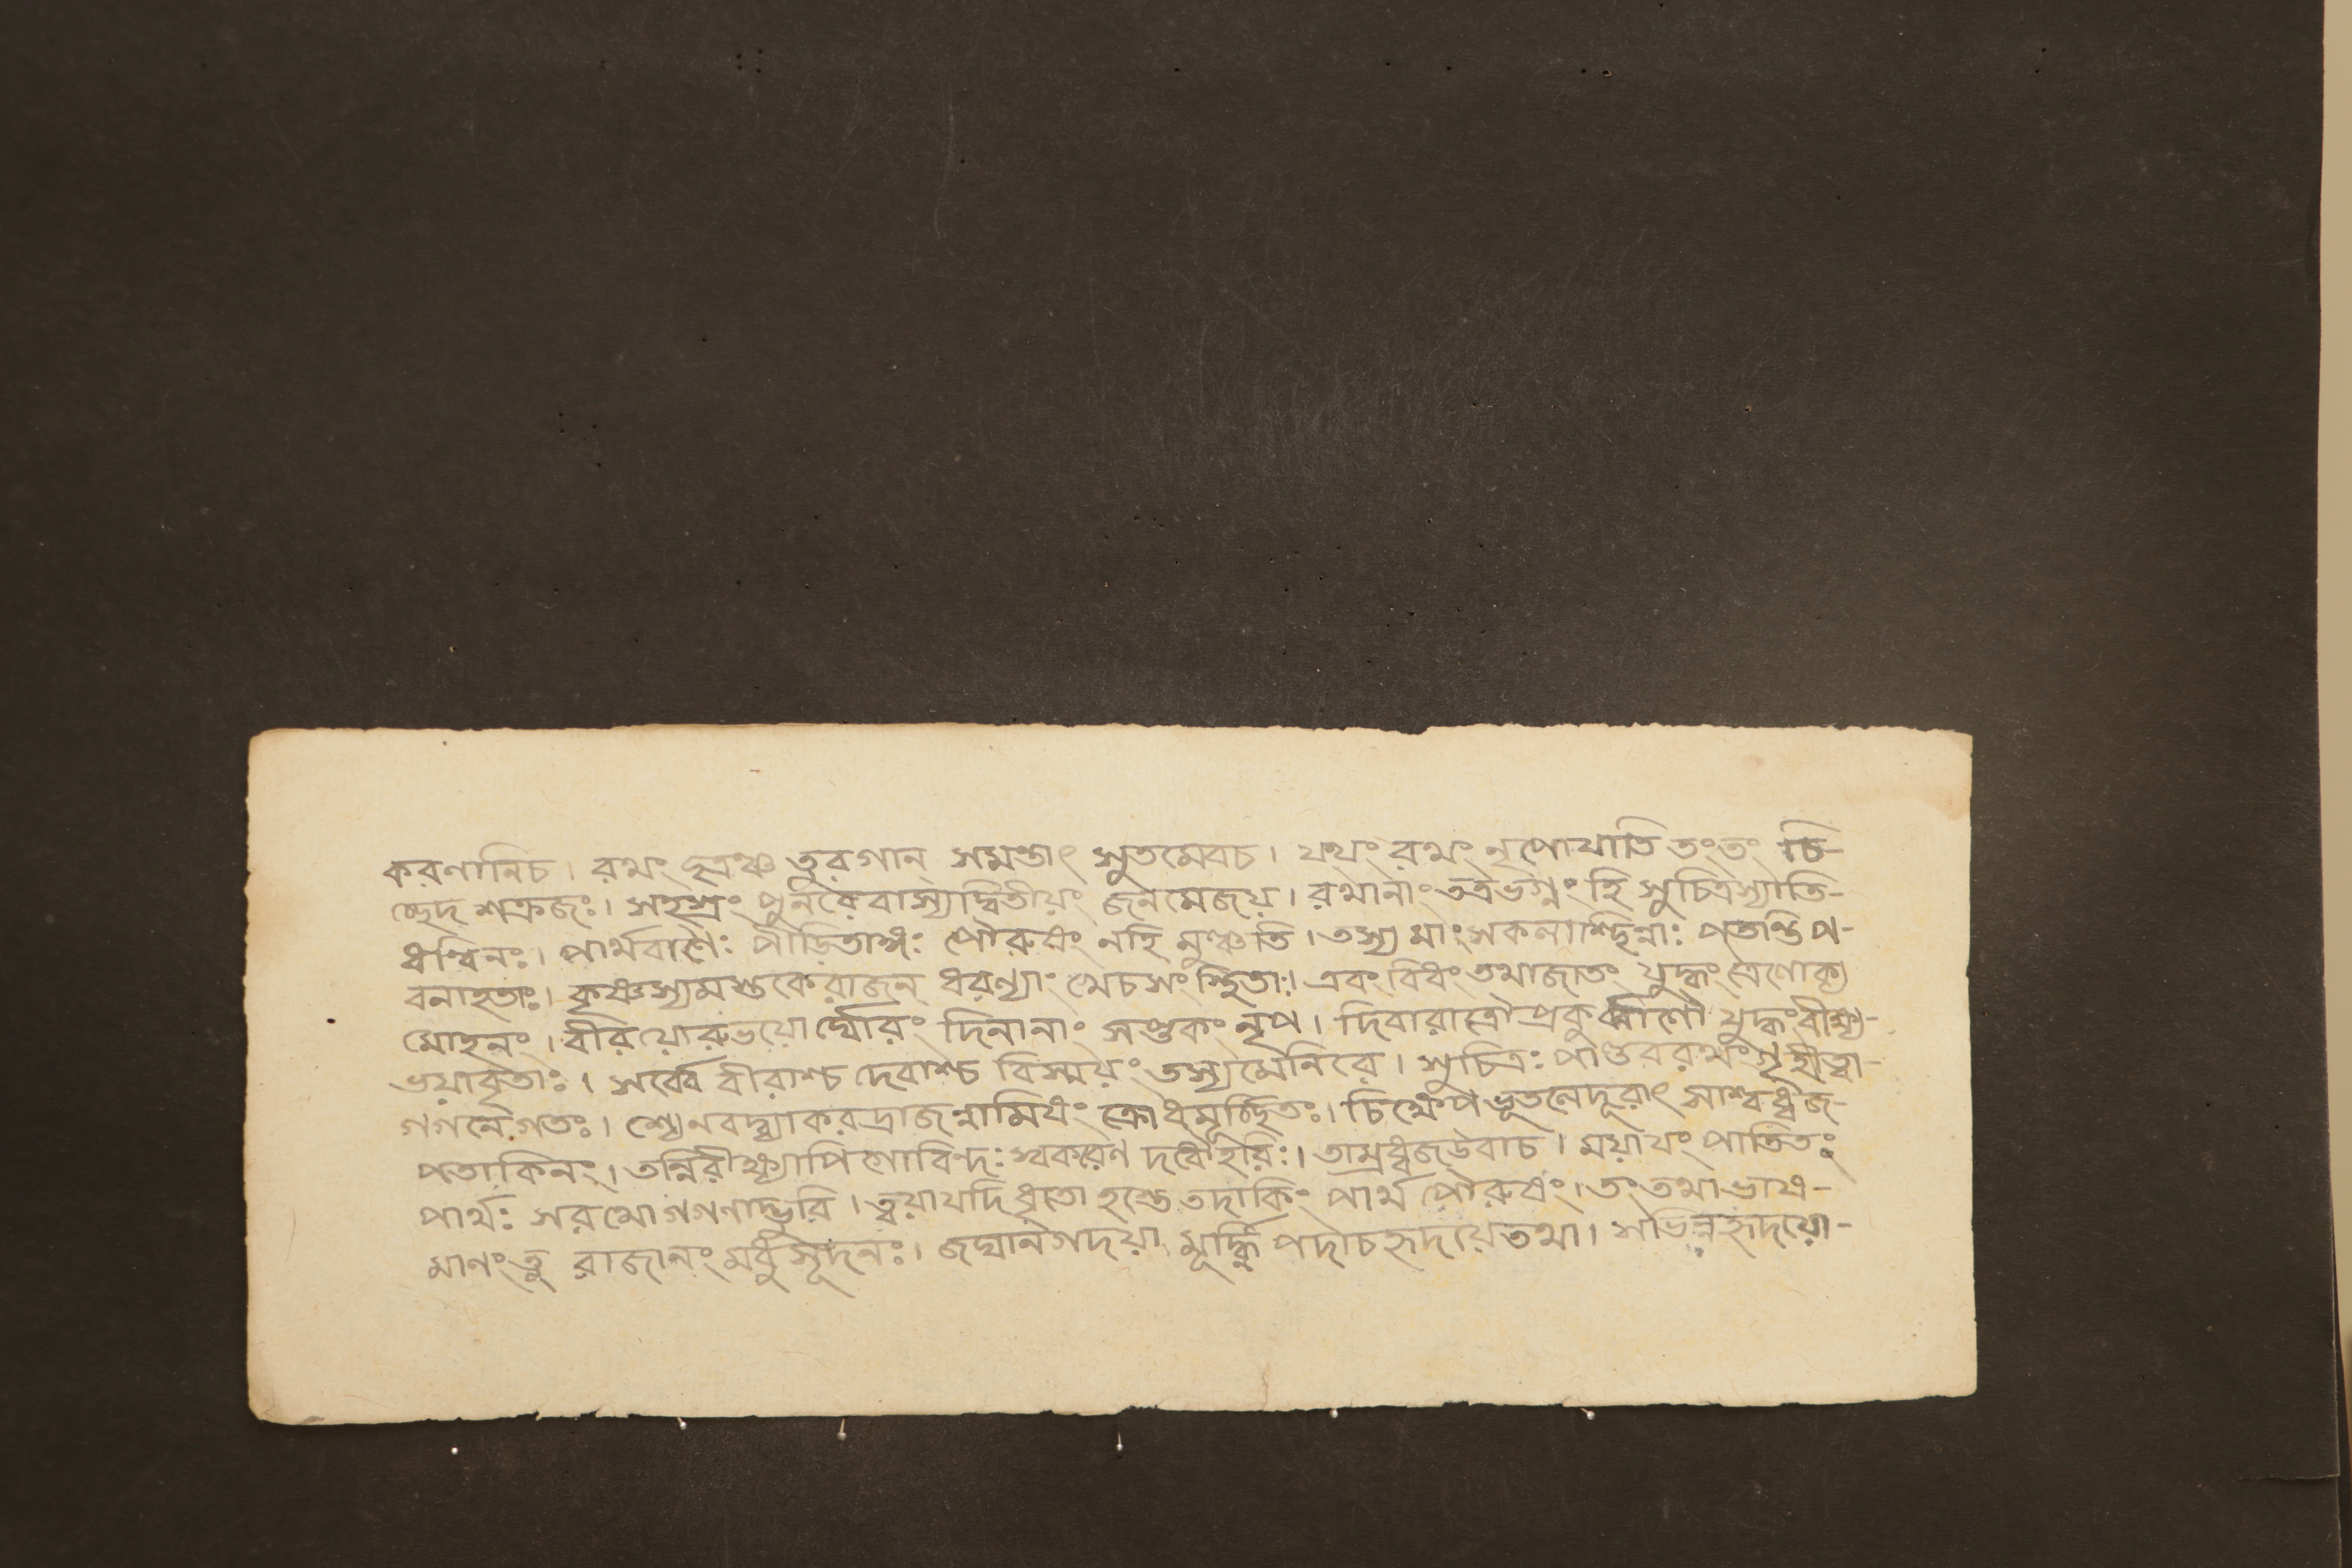 করণানিচ। রথং ছত্রঞ্চ তুরগান্ সমন্তাৎ সুতমেবচ। যথং রথং নৃপোযাতি তংতং চি-
চ্ছেদ শক্রজঃ। সহস্রং পুনরেবাস্যদ্বিতীয়ং জনমেজয়। রথানাং তত্রভগ্নং হি সুচিত্রস্যাতি-
ধন্বিনঃ। পার্থবাণৈঃ পীড়িতাঙ্গঃ পৌরুষং নহি মুঞ্চতি। তস্য মাংসকলাশ্ছিন্নাঃ পতান্তিপ-
বনাহতাঃ। কৃষ্ণস্যমস্তকেরাজন্ ধরণ্যাং খেচসংস্থিতাঃ। এবং বিধং তথাজাতং যুদ্ধং ত্রৈলোক্য
মোহনং। বীরয়োরুভয়োর্ঘ্ঘোরং দিনানাং সপ্তকং নৃপ। দিবারাত্রৌপ্রকুর্ব্বাণৌ যুদ্ধংবীক্ষ্য-
ভয়াবৃতাঃ। সর্ব্বে বীরাশ্চ দেবাশ্চ বিস্ময়ং তস্যমেনিরে। সুচিত্রঃ পাণ্ডবরথং গৃহীত্বা-
গগনেগতঃ। শ্যেনবদ্ব্যাকরদ্রাজন্নামিষং ক্রোধমূর্চ্ছিতঃ। চিক্ষেপভূতলেদূরাৎ সাশ্বধ্বজ-
পতাকিনং। তন্নিরীক্ষ্যাপিগোবিন্দঃ স্বকরেণ দধৌহরিঃ। তাম্রধ্বজউবাচ। ময়াযং পাতিতঃ
পার্থঃ সরথো গগণাদ্ভুবি। ত্বয়াযদিধৃতো হস্তে তদাকিং পার্থ পৌরুষং। তং তথা ভাষ-
মাণং তু রাজানং মধুসূদনঃ। জঘানগদয়া মূর্দ্ধ্নি পদাচহৃদয়েতথা। সভিন্নহৃদয়ো-